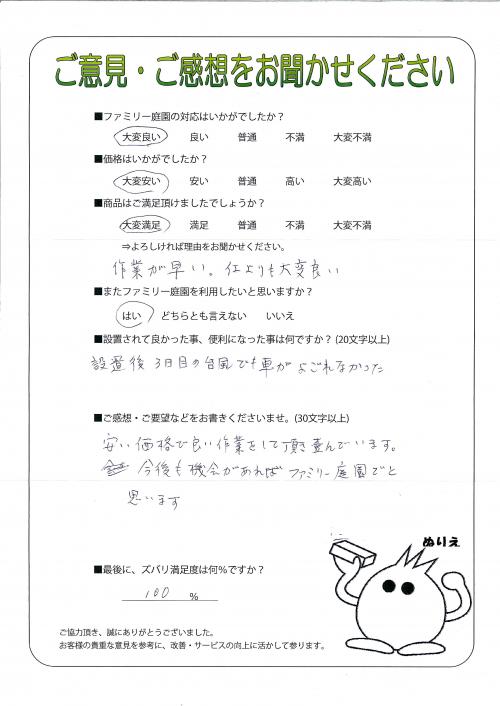 ご意見・ご感想をお聞かせください
■ファミリー庭園の対応はいかがでしたか？
大変良い 良い 普通 不満 大変不満
■価格はいかがでしたか？
大変安い 安い 普通 高い 大変高い
■商品はご満足頂けましたでしょうか？
大変満足 満足 普通 不満 大変不満
⇒よろしければ理由をお聞かせください。
作業が早い。 仕上りも大変良い
■またファミリー庭園を利用したいと思いますか？
はい どちらとも言えない いいえ
■設置されて良かった事、便利になった事は何ですか？(20文字以上)
設置後 3日目の台風でも車がよごれなかった
■ご感想・ご要望などをお書きくださいませ。(30文字以上)
安い価格で良い作業をして頂き喜んでいます。
今後も機会があればファミリー庭園でと
思います
ぬりえ
■最後に、ズバリ満足度は何％ですか？
100 %
ご協力頂き、誠にありがとうございました。
お客様の貴重な意見を参考に、改善・サービスの向上に活かして参ります。